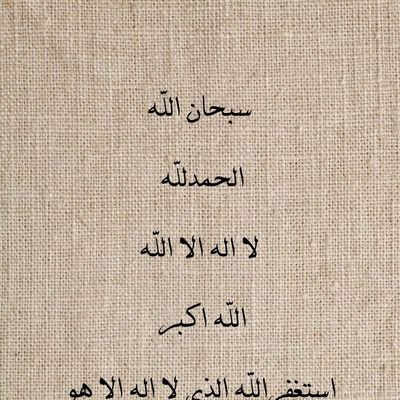 سبحان اللّه
الحمدللّه
لا اله الا اللّه
اللّه اكبر
استغفر اللّه الذي لا اله الا هو